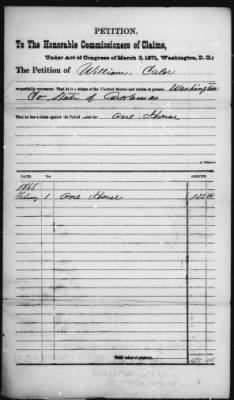 PETITION.
To The Honorable Commissioners of Claims,
Under Act of Congress of March 3, 1871, Washington, D. C.:
The Petition of William Caler
respectfully represents: That he is a citizen of the United States and resides at present, Washington
Co State of Arkansas
That he has a claim against the United States for One Horse
DATE. NO.
1865
February 1 One Horse 125 00
Total value of property,
125 00